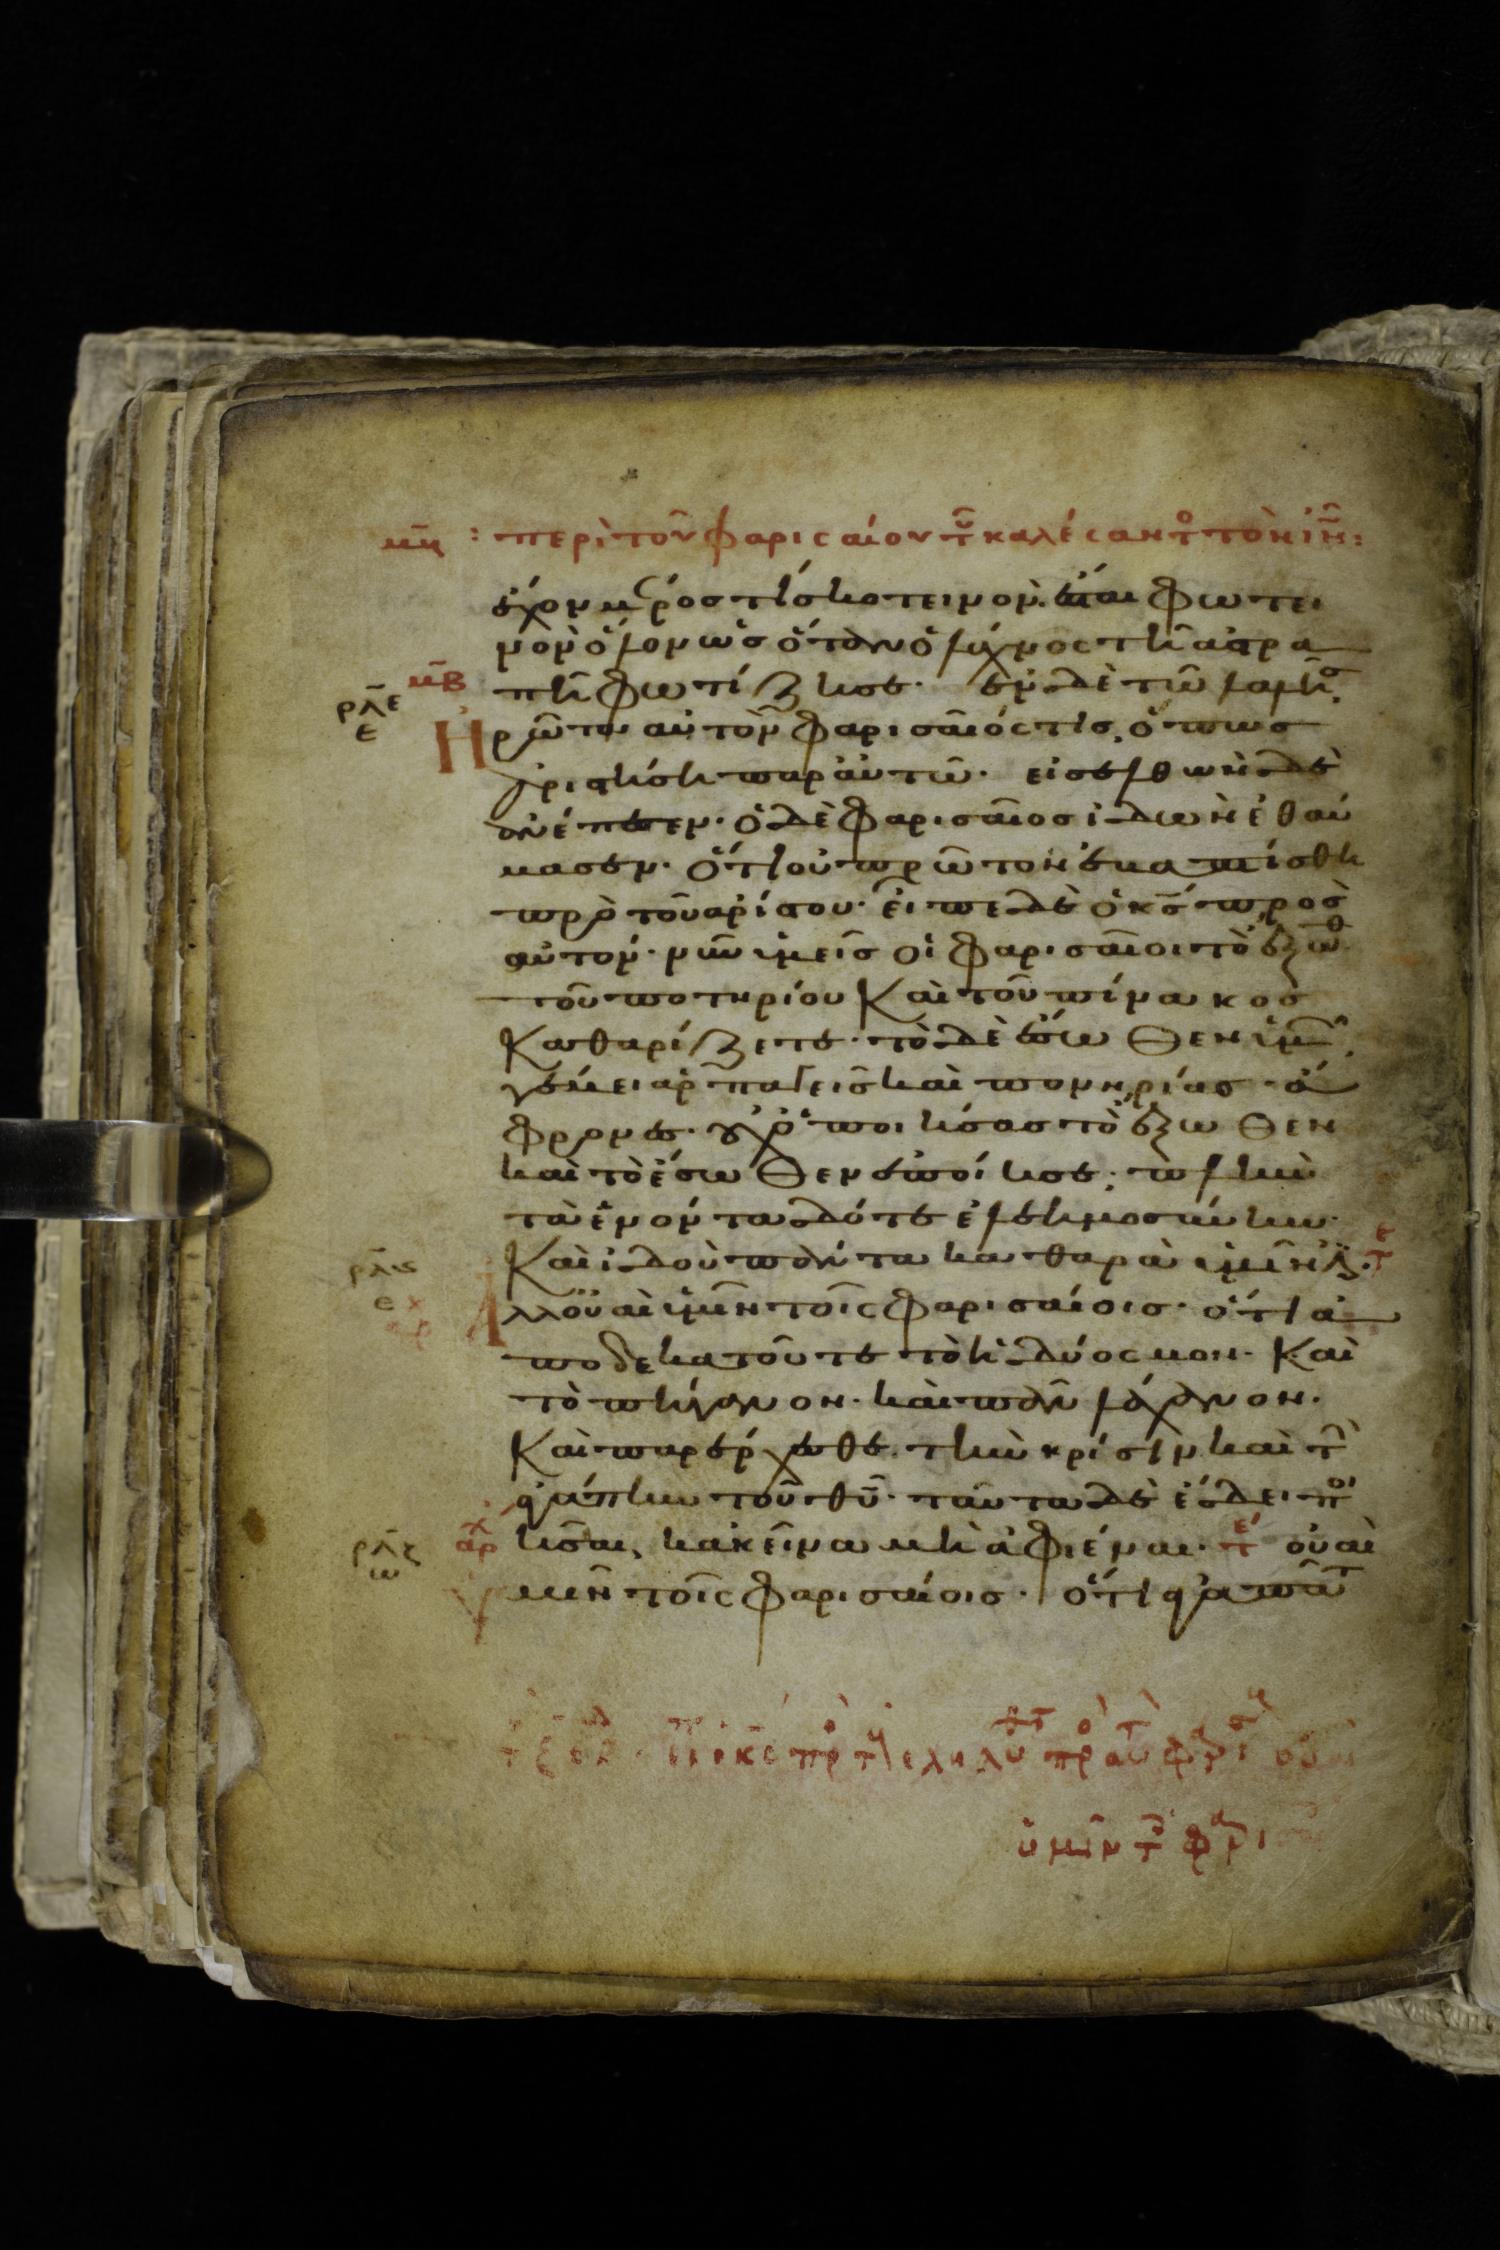 μβ : περὶ τοῦ φαρισαίου τοῦ καλέσαντο τὸν ιν :
ἔχον μέρος τί σκοτεινόν. ἔσται φωτει
νὸν ὅλον ὡς ὅταν ὁ λύχνος τῇ ἀστρα
μβ πῇ φωτίζη σε· ἐν δὲ τῶ λαλῆσ
ρλε
ε
Ἠρώτα αὐτὸν φαρισαῖός τις, ὅπως
ἀριστήση παρ αὐτῶ· εἰσελθὼν δὲ
ἀνέπεσεν· ὁ δὲ φαρισαῖος ἰδὼν ἐθαύ
μασεν· ὅτι οὐ πρῶτον ἐβαπτίσθη
πρὸ τοῦ ἀρίστου· εἶπε δὲ ὁ κς πρὸς
αὐτόν· νῦν ὑμεῖς οἱ φαρισαῖοι τὸ ἔξωθ
τοῦ ποτηρίου καὶ τοῦ πίνακος
καθαρίζετε· τὸ δὲ ἔσωθεν ὑμῶ
γέμει ἁρπαγεῖς καὶ πονηρίας· ἄ
φρονες· οὐχ ὁ ποιήσας τὸ ἔξωθεν
καὶ τὸ ἔσωθεν ἐποίησε; πλὴν
τὰ ἐνόντα δότε ἐλεημοσύνην·
ρλς
ε
Καὶ ἰδοὺ πάντα καθαρὰ ὑμῖν ἐ. τε
Ἀλλ οὐαὶ ὑμῖν τοῖς φαρισαίοις· ὅτι ἀ
ποδεκατοῦτε τὸ ἡδύοσμον· καὶ
τὸ πήγανον· καὶ πᾶν λάχανον·
Καὶ παρέρχεσθε τὴν κρίσιν καὶ τ
ἀγάπην τοῦ θυ· ταῦτα δὲ ἔδει ποι
ρλζ
ω
αρχ ῆσαι, κἀκεῖνα μὴ ἀφιέναι· τε οὐαὶ
ὑμῖν τοῖς φαρισαίοις· ὅτι ἀγαπᾶτ
ὑμῖν τ φαρι